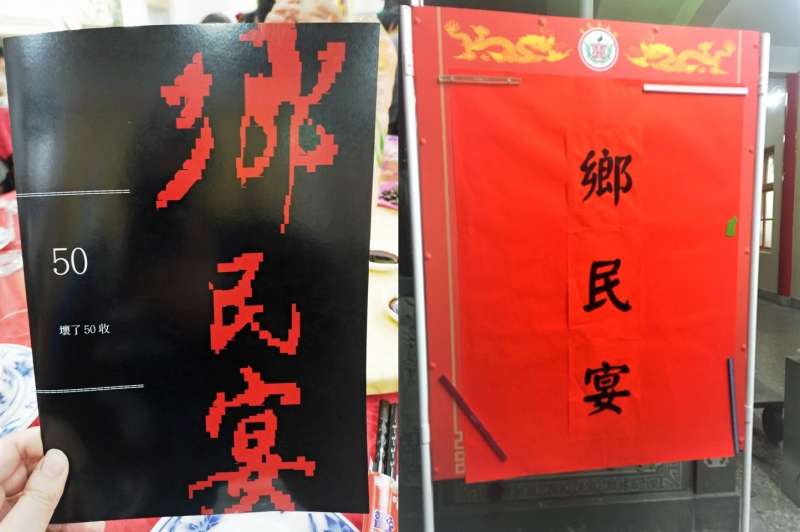 鄉民宴
50
壞了50收
鄉民宴